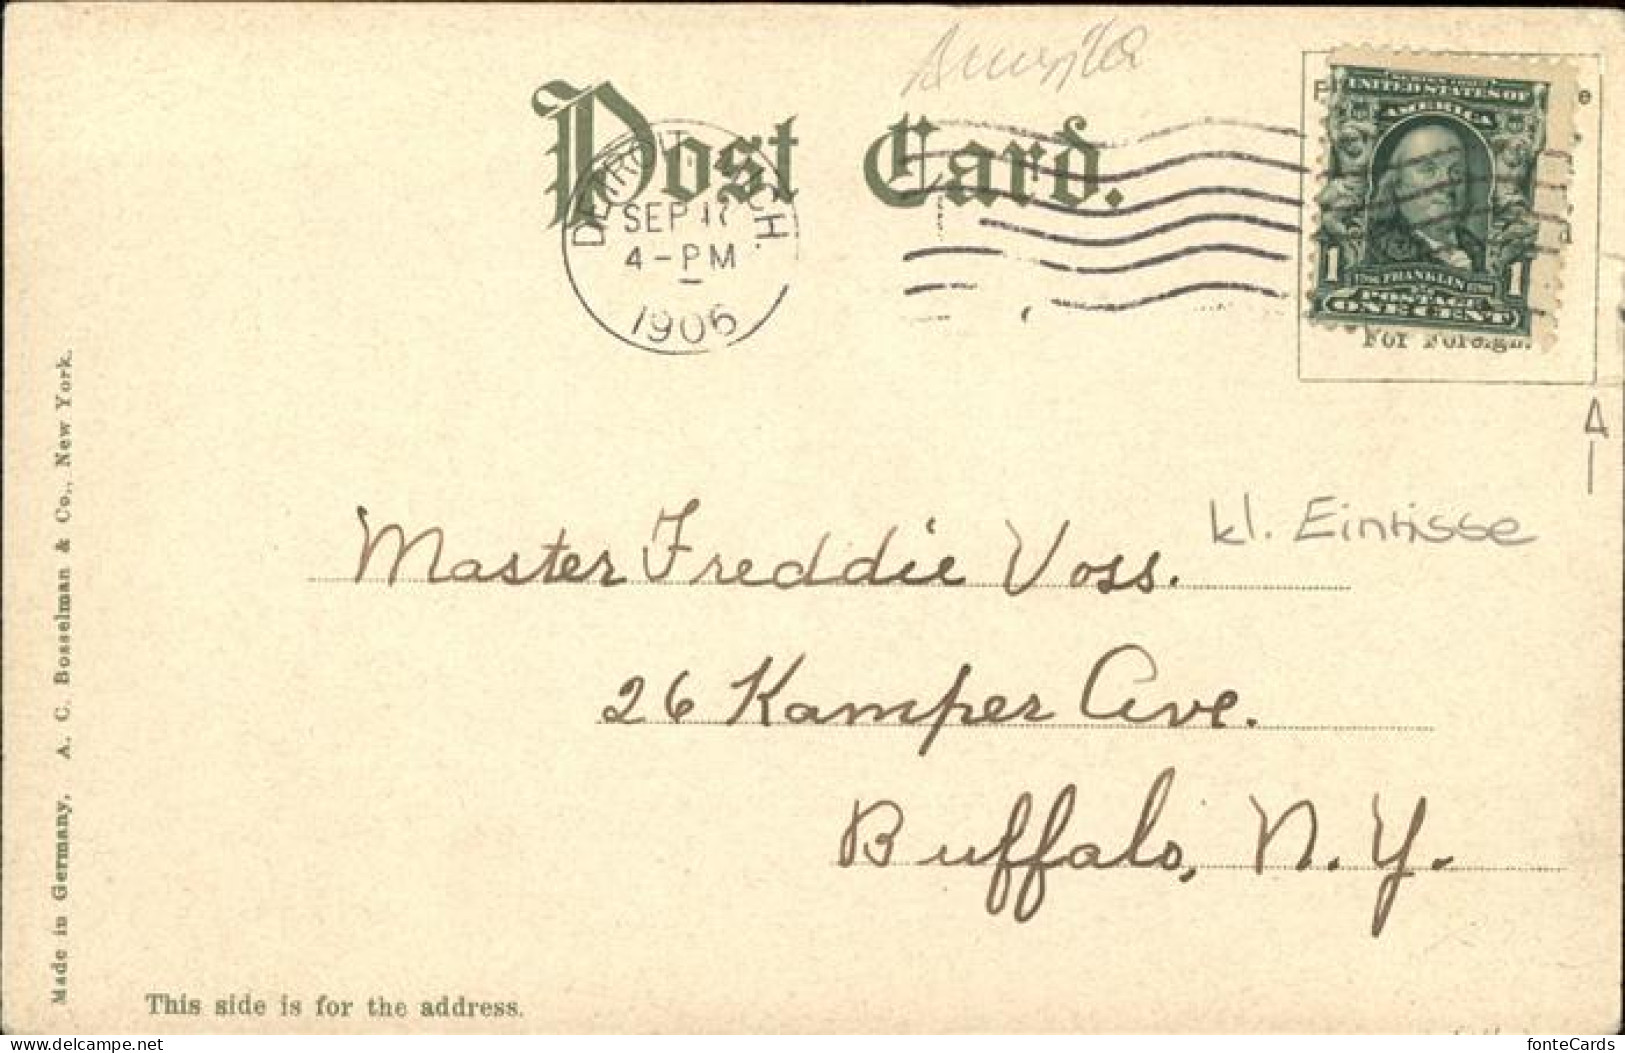 Post Card.
DETROIT, MICH.
SEP 17
4-PM
1906
UNITED STATES OF
AMERICA
1 FRANKLIN 1
POSTAGE
ONE CENT
For Foreign.
A
kl. Einrisse
Master Freddie Voss.
26 Kamper Ave.
Buffalo, N. Y.
Made in Germany, A. C. Bosselman & Co., New York.
This side is for the address.
delcampe.net
fonteCards